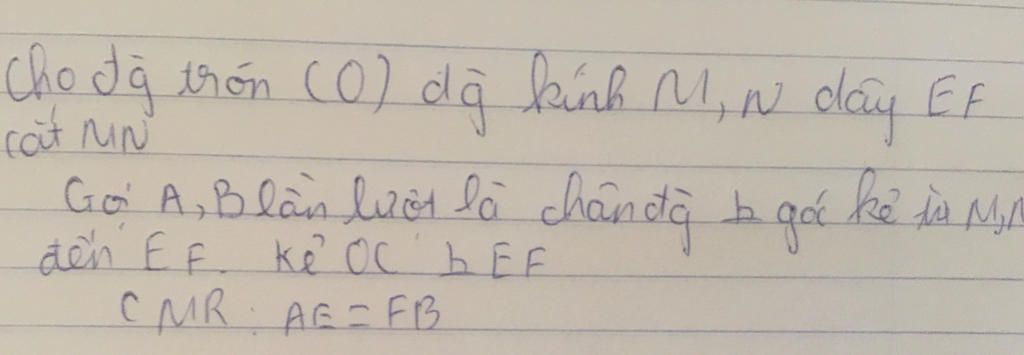 Cho đg tròn (O) đg kính M, N dây EF
cắt MN
Gọi A, B lần lượt là chân đg ⊥ góc kẻ từ M, N
đến EF. Kẻ OC ⊥ EF
CMR: AE = FB